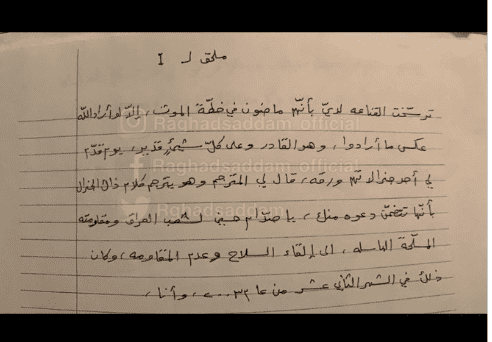 ملحق لـ I
ترسّخت القناعه لديّ بأنّهم ماضون في خطّة الموت، إلّا لو أراد اللّه
عكس ما أرادوا، وهو القادر وعلى كلّ شيئٍ قدير، يوم قدّم
لي أحد جنرالاتهم ورقه، قال لي المترجم وهو يترجم كلام ذلك الجنرال
بأنّها تتضمّن دعوه منك، يا صدّام حسين لشعب العراق ومقاومته
المسلّحة الباسله، الى إلقاء السلاح وعدم المقاومه، وكان
ذلك في الشهر الثاني عشر من عام ٢٠٠٣، وأنا،
Raghadsaddam_official
Raghadsaddam official
Rghadsaddam